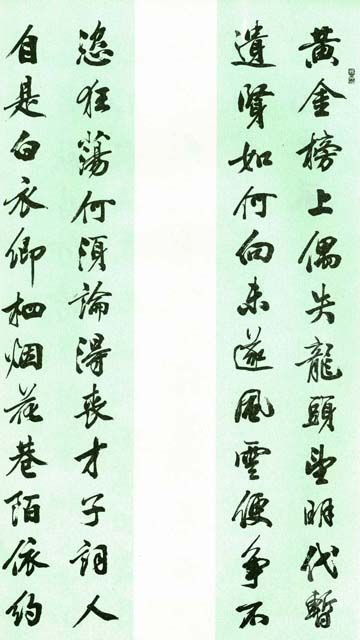 黃金榜上偶失龍頭望明代暫
遺賢如何向未遂風雲便爭不
恣狂蕩何須論得喪才子詞人
自是白衣卿相烟花巷陌依約